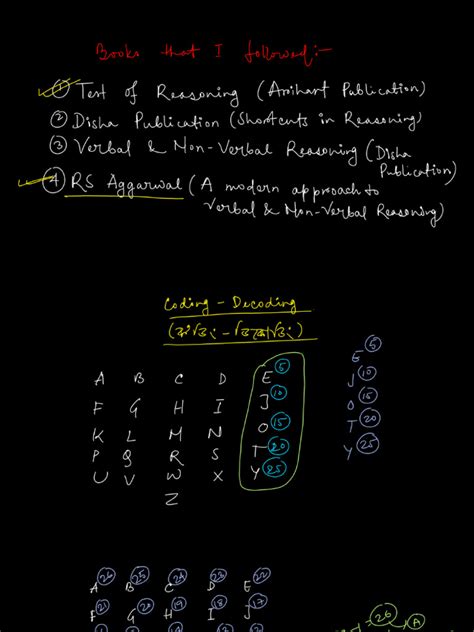 Books that I followed:-
① Test of Reasoning (Arihant Publication)
② Disha Publication (Shortcuts in Reasoning)
③ Verbal & Non-Verbal Reasoning (Disha
Publication)
④ RS Aggarwal (A modern approach to
Verbal & Non-Verbal Reasoning)
Coding - Decoding
A B C D E ⑤
F G H I J ⑩
K L M N O ⑮
P Q R S T ⑳
U V W X Y ㉕
Z
E ⑤
J ⑩
O ⑮
T ⑳
Y ㉕
A ㉖ B ㉕ C ㉔ D ㉓ E ㉒
F ㉑ G ⑳ H ⑲ I ⑱ J ⑰
㉖ A